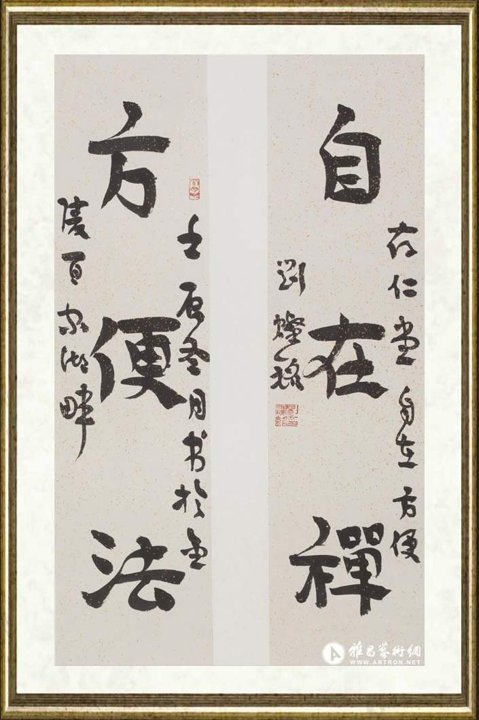 存仁堂自在方便
自在禪
劉燦銘
壬辰冬月书於金
方便法
陵百家湖畔
雅昌藝術網
WWW.ARTRON.NET